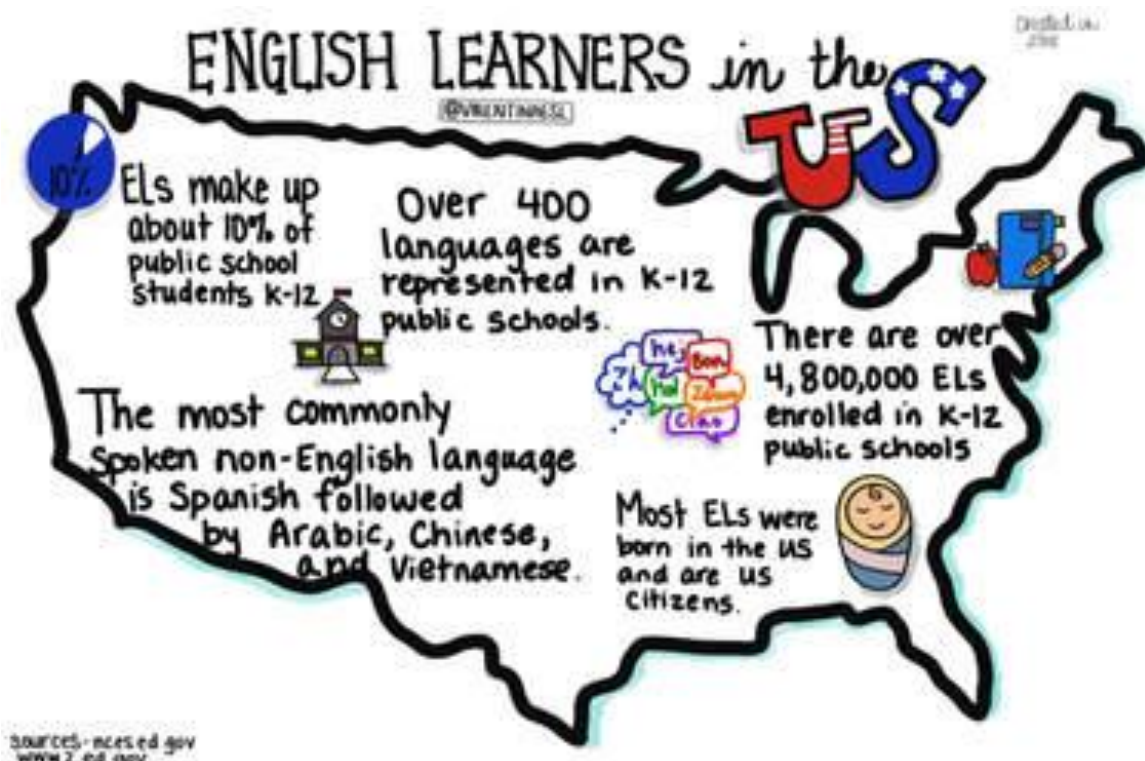 ENGLISH LEARNERS in the US
10%
ELs make up
about 10% of
public school
students K-12
Over 400
languages are
represented in K-12
public schools.
The most commonly
spoken non-English language
is Spanish followed
by Arabic, Chinese,
and Vietnamese.
hej
Bon
Zh
Ciao
There are over
4,800,000 ELs
enrolled in K-12
public schools
Most ELs were
born in the US
and are US
citizens.
sources- nces.ed.gov
www2.ed.gov